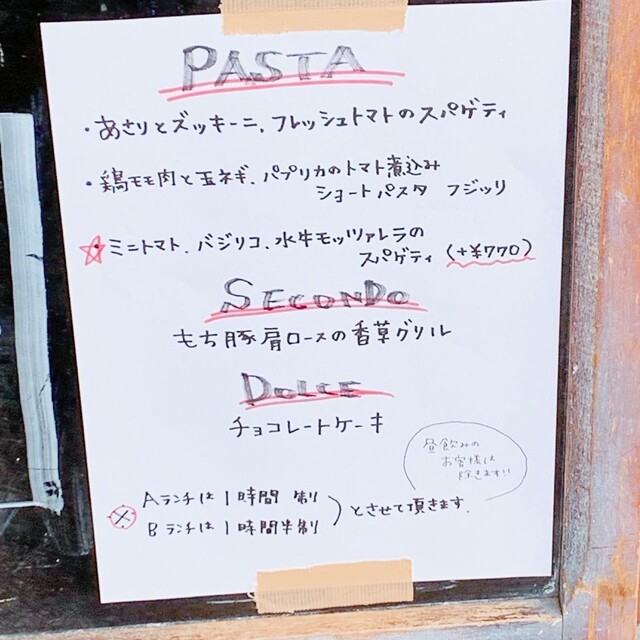 PASTA
・あさりとズッキーニ、フレッシュトマトのスパゲティ
・鶏モモ肉と玉ネギ、パプリカのトマト煮込み
ショートパスタ フジッリ
・ミニトマト、バジリコ、水牛モッツァレラの
スパゲティ (+¥770)
SECONDO
もち豚肩ロースの香草グリル
DOLCE
チョコレートケーキ
昼飲みの
お客様は
除きます!!
Aランチは1時間 制
Bランチは1時間半制
とさせて頂きます。